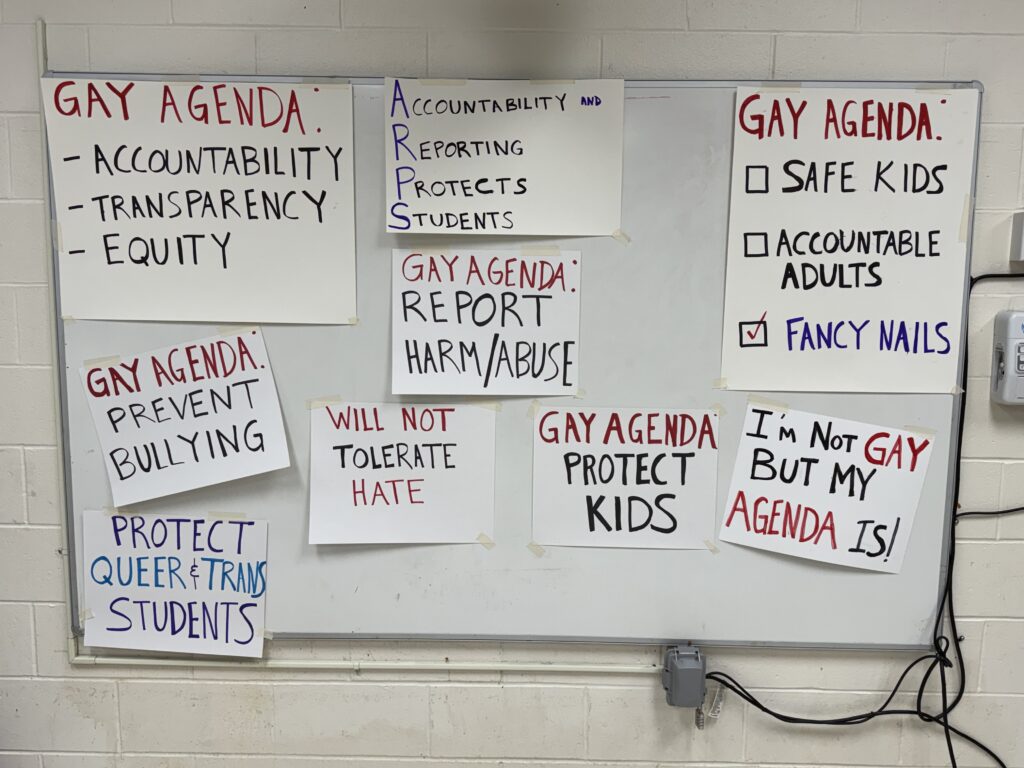 GAY AGENDA:
- ACCOUNTABILITY
- TRANSPARENCY
- EQUITY
ACCOUNTABILITY AND
REPORTING
PROTECTS
STUDENTS
GAY AGENDA:
☐ SAFE KIDS
☐ ACCOUNTABLE
ADULTS
☑ FANCY NAILS
GAY AGENDA:
REPORT
HARM/ABUSE
GAY AGENDA:
PREVENT
BULLYING
WILL NOT
TOLERATE
HATE
GAY AGENDA
PROTECT
KIDS
I'm NOT GAY
BUT MY
AGENDA IS!
PROTECT
QUEER & TRANS
STUDENTS